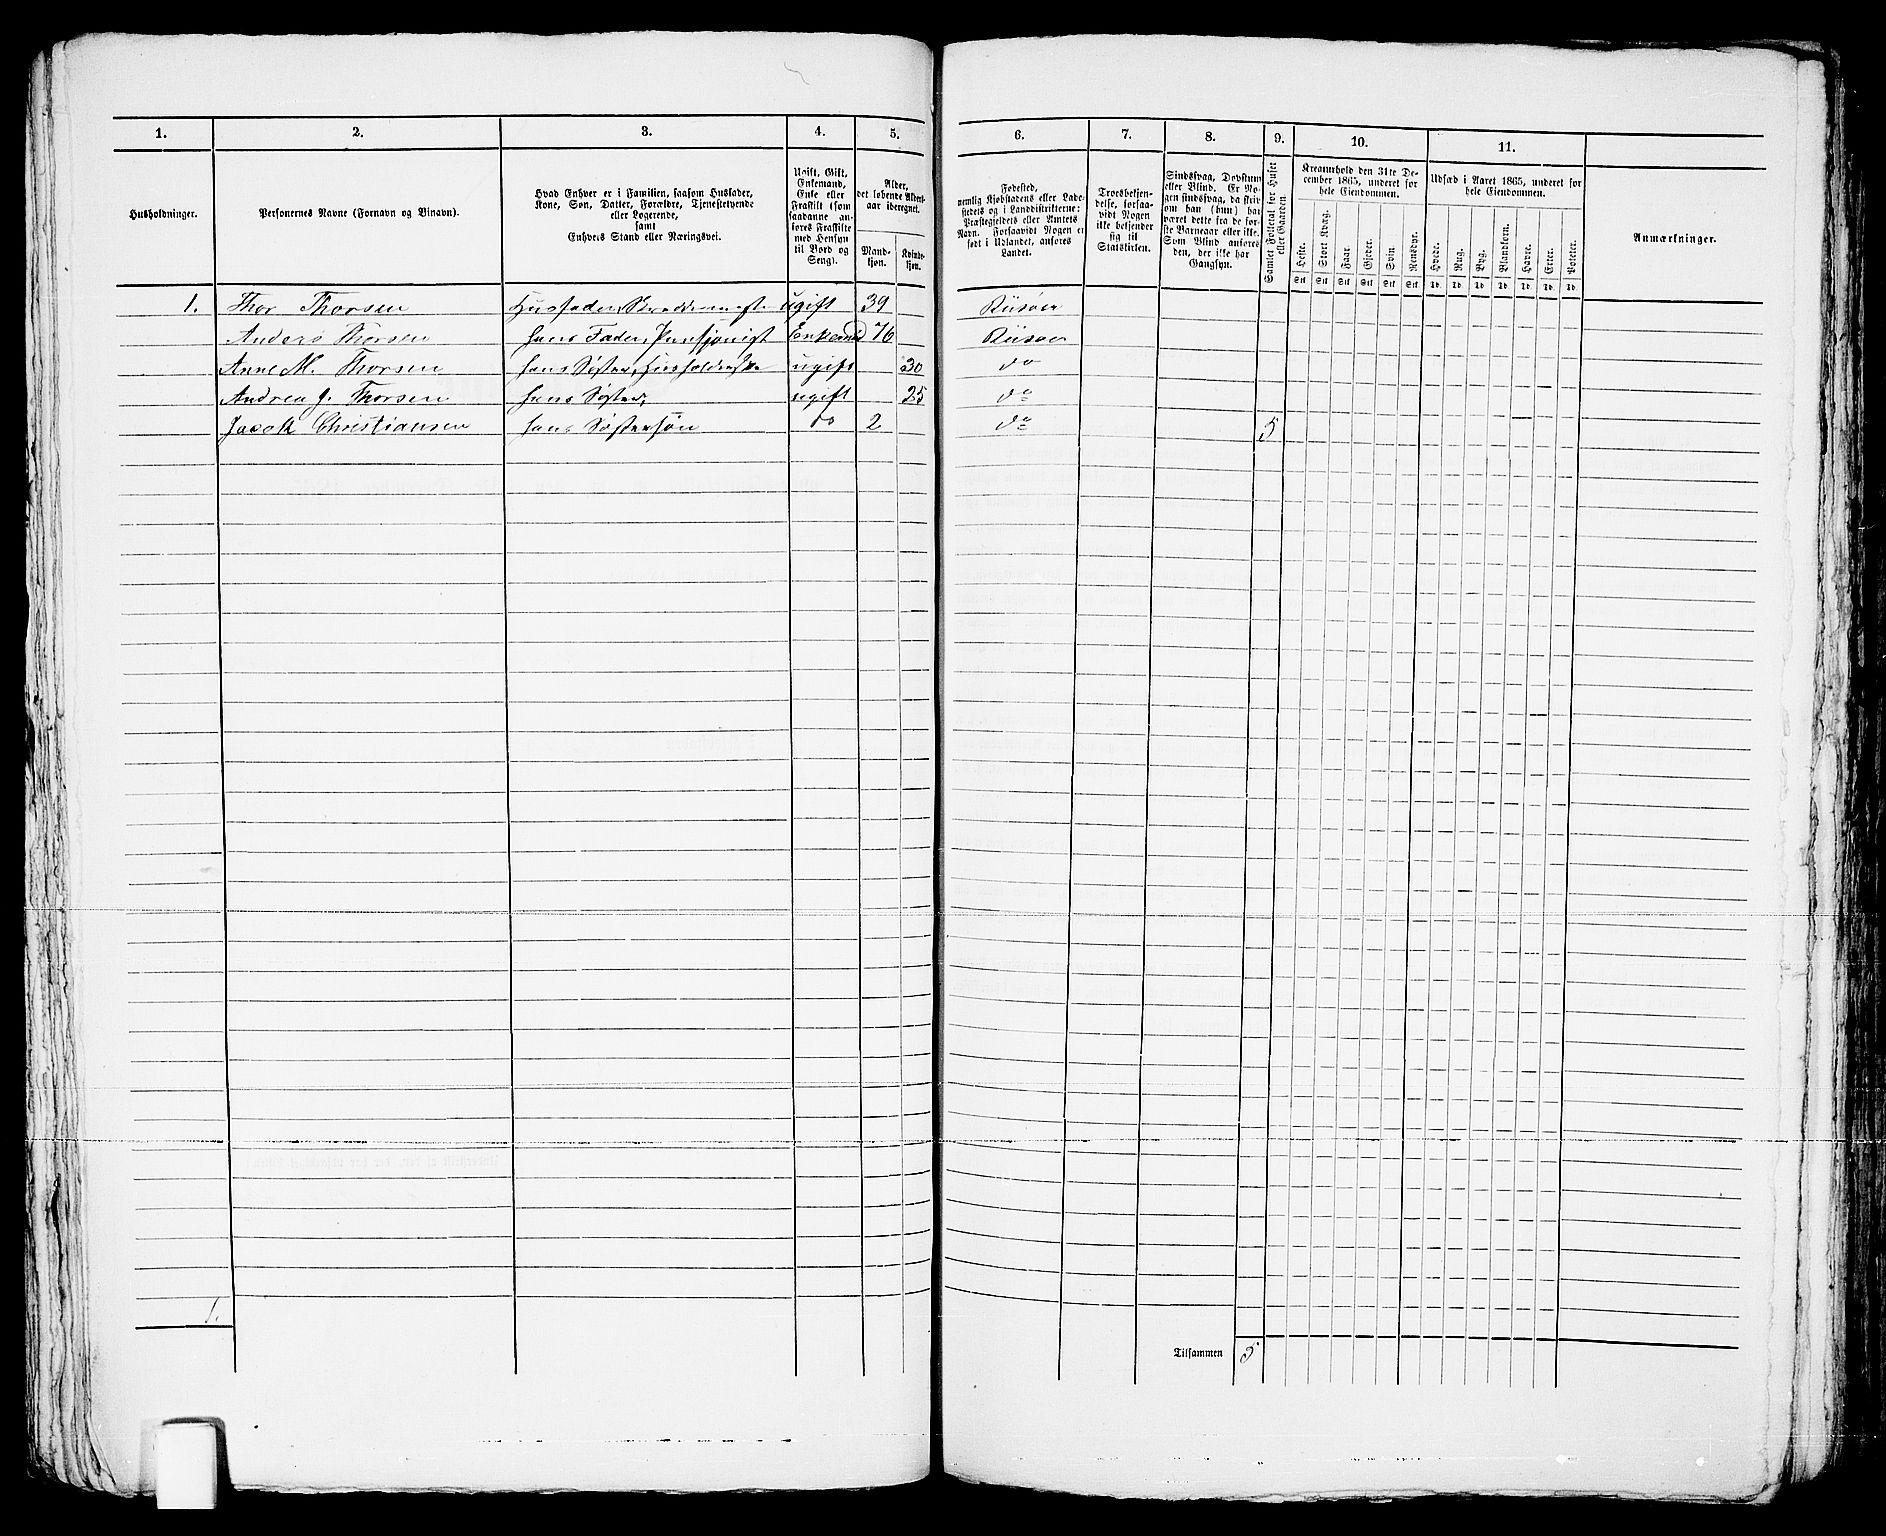 1. 2. 3. 4. 5. 6. 7. 8. 9. 10. 11.
Husholdninger.
Personernes Navne (Fornavn og Binavn).
Hvad Enhver er i Familien, saasom Husfader,
Kone, Søn, Datter, Forældre, Tjenestetyende
eller Logerende,
samt
Enhvers Stand eller Næringsvei.
Ugift, Gift,
Enkemand,
Enke eller
Fraskilt (som
saadanne an-
føres Fraskilte
med Hensyn
til Bord og
Seng).
Alder,
det løbende Alders-
aar iberegnet.
Mand-
kjøn.
Kvinde-
kjøn.
Fødested,
nemlig Kjøbstadens eller Lade-
stedets og i Landdistrikterne:
Præstegjeldets eller Amtets
Navn. Forsaavidt Nogen er
født i Udlandet, anføres
Landet.
Troesbekjen-
delse, forsaa-
vidt Nogen
ikke bekjender
sig til
Statskirken.
Sindssvag, Døvstum
eller Blind. Er No-
gen sindssvag, da skriv
om han (hun) har
været dette fra de før-
ste Barneaar eller ikke.
Som Blind anføres
den, der ikke har
Gangsyn.
Samlet Folketal for Huset
eller Gaarden.
Kreaturhold den 31te De-
cember 1865, underet for
hele Eiendommen.
Heste. Stort Kvæg. Faar. Gjeder. Svin Rensdyr.
Stk Stk Stk Stk Stk Stk
Udsæd i Aaret 1865, underet for
hele Eiendommen.
Hvede. Rug. Byg. Blandkorn. Havre. Erter. Poteter.
Td. Td. Td. Td. Td. Td. Td.
Anmærkninger.
1. Thor Thorsen Husfader, ugift 39 Riisøer
Anders Thorsen hans Fader, Pensjonist Enkemd 76 Riisøer
Anne M. Thorsen hans Søster, ugift 30 do
Andrea J. Thorsen hans Søster, ugift 25 do
Jacob Christiansen hans Søstersøn do 2 do 5
1.
Tilsammen 5